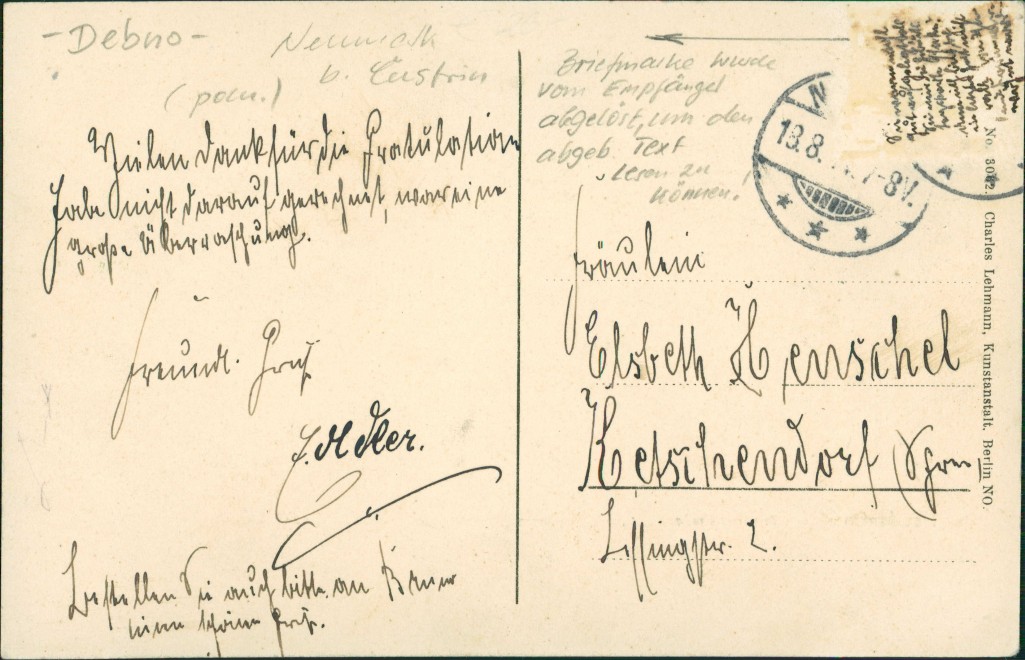 - Debno -
Neumark
b. Cüstrin
(poln.)
Vielen Dank für die Gratulation
Habe nicht darauf gerechnet, war eine
große Überraschung.
Freundl. Gruß
J. Adler.
Bestellen Sie auch bitte an
einen schönen Gruß.
Briefmarke wurde
vom Empfänger
abgelöst, um den
abgeb. Text
lesen zu
können.
13.8. 7-8V.
Fräulein
Elsbeth Henschel
Ketschendorf (Spree
Lessingstr. 2.
Charles Lehmann, Kunstanstalt. Berlin NO.